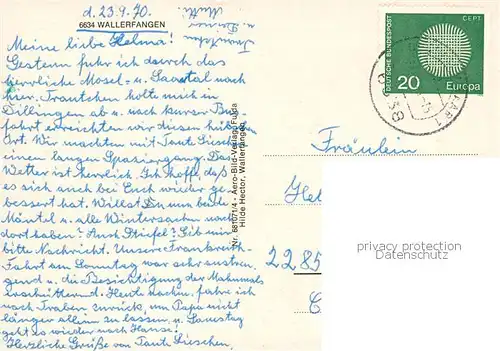 d. 23.9.70.
6634 WALLERFANGEN
Meine liebe Helma!
Gestern fuhr ich durch das
herrliche Mosel- u. Saartal nach
hier. Trautchen holte mich in
Dillingen ab u. nach kurzer Bus-
fahrt erreichten wir diesen hübschen
Ort. Wir machten mit Tante Lieschen
einen langen Spaziergang. Das
Wetter ist herrlich. Ich hoffe, daß
es sich auch bei Euch wieder ge-
bessert hat. Willst Du nun beide
Mäntel u. alle Wintersachen nach
dort haben? Auch Stiefel? Gib mir
bitte Nachricht. Unsere Frankreich-
Fahrt am Sonntag war sehr anstren-
gend u. die Besichtigung der Mahnmals
erschütternd. Heute nachm. fahre ich
nach Traben zurück, um Papa nicht
länger allein zu lassen, u. Samstag
geht es wieder nach Hause!
Herzliche Grüße von Tante Lieschen,
Trautchen
u. Deiner
Mutti.
Nr. 6810714 - Aero-Bild-Verlag, Fulda
Hilde Hector, Wallerfangen
DEUTSCHE BUNDESPOST
CEPT
20
Europa
Fräulein
Hel
2285
privacy protection
Datenschutz